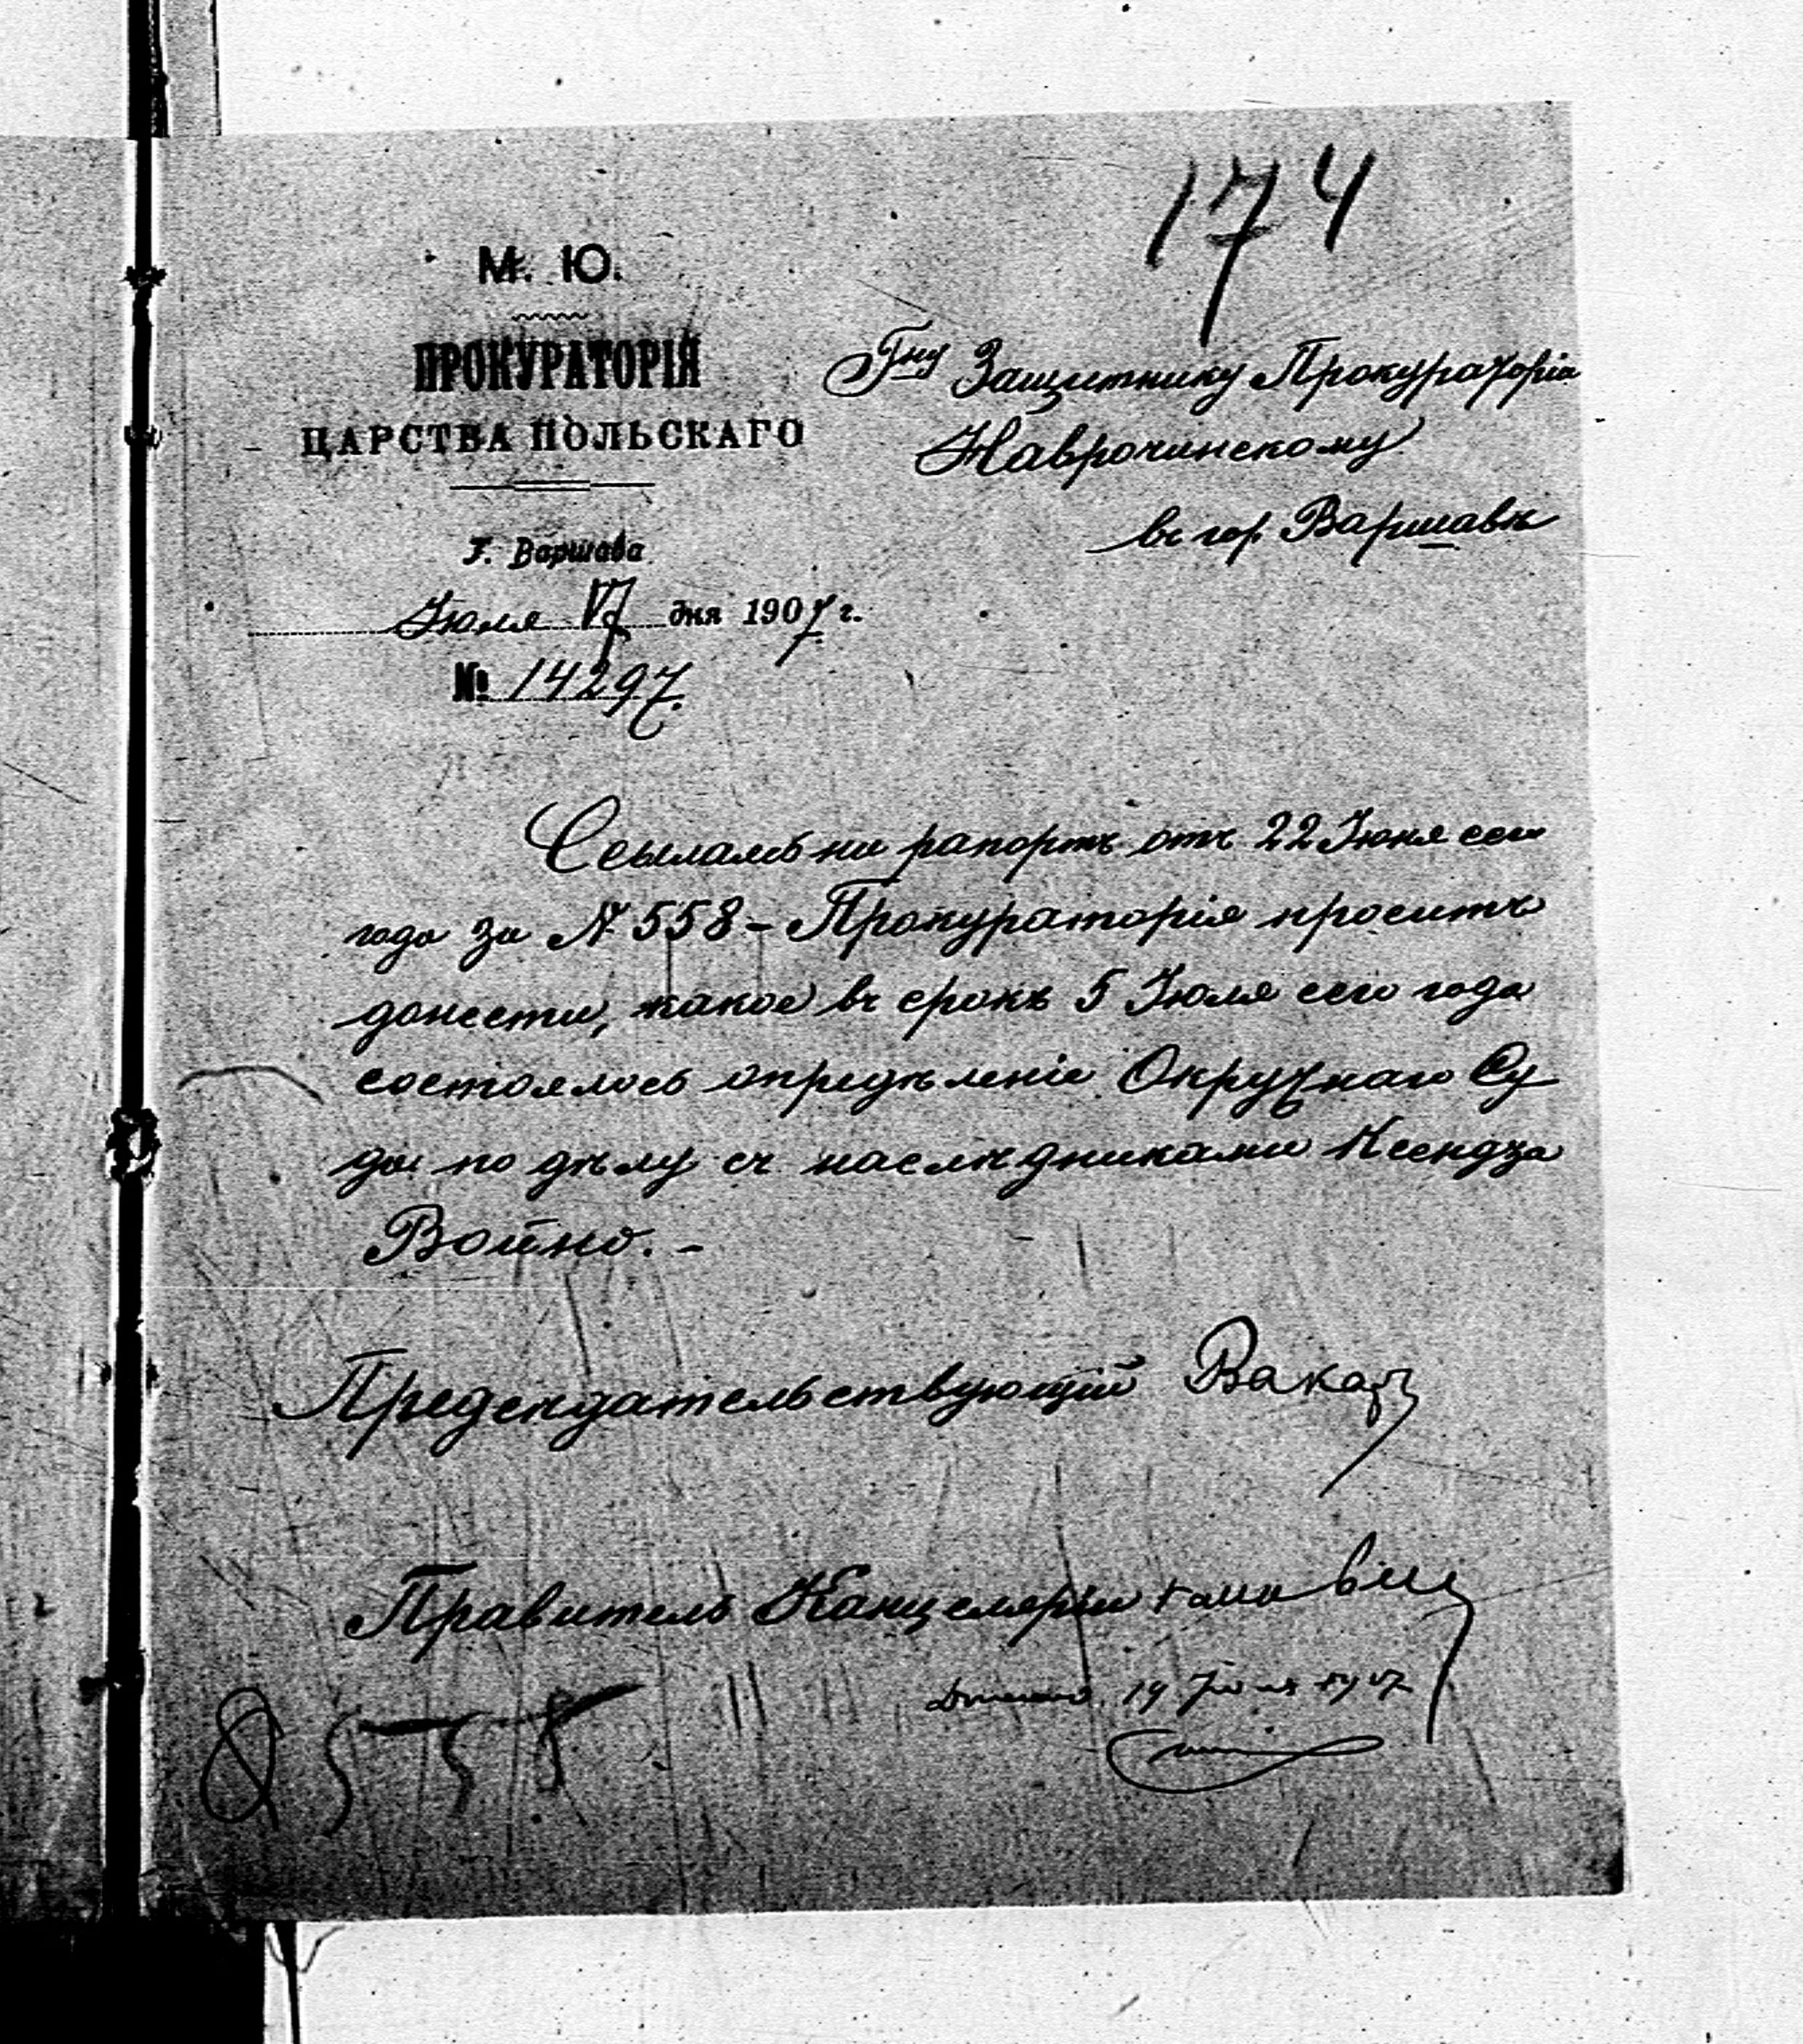 174
М. Ю.
ПРОКУРАТОРІЯ
ЦАРСТВА ПОЛЬСКАГО
Г. Варшава
Іюля 17 дня 1907 г.
№ 14297.
Гну Защитнику Прокураторіи
Наврочинскому
въ гор. Варшавѣ
Ссылаясь на рапортъ отъ 22 Іюня сего
года за № 558 – Прокураторія проситъ
донести, какое въ срокъ 5 Іюля сего года
состоялось опредѣленіе Окружнаго Су
да по дѣлу съ наслѣдниками Ксендза
Войно. –
Предсѣдательствующій
Правитель Канцеляріи
19 Іюля 1907